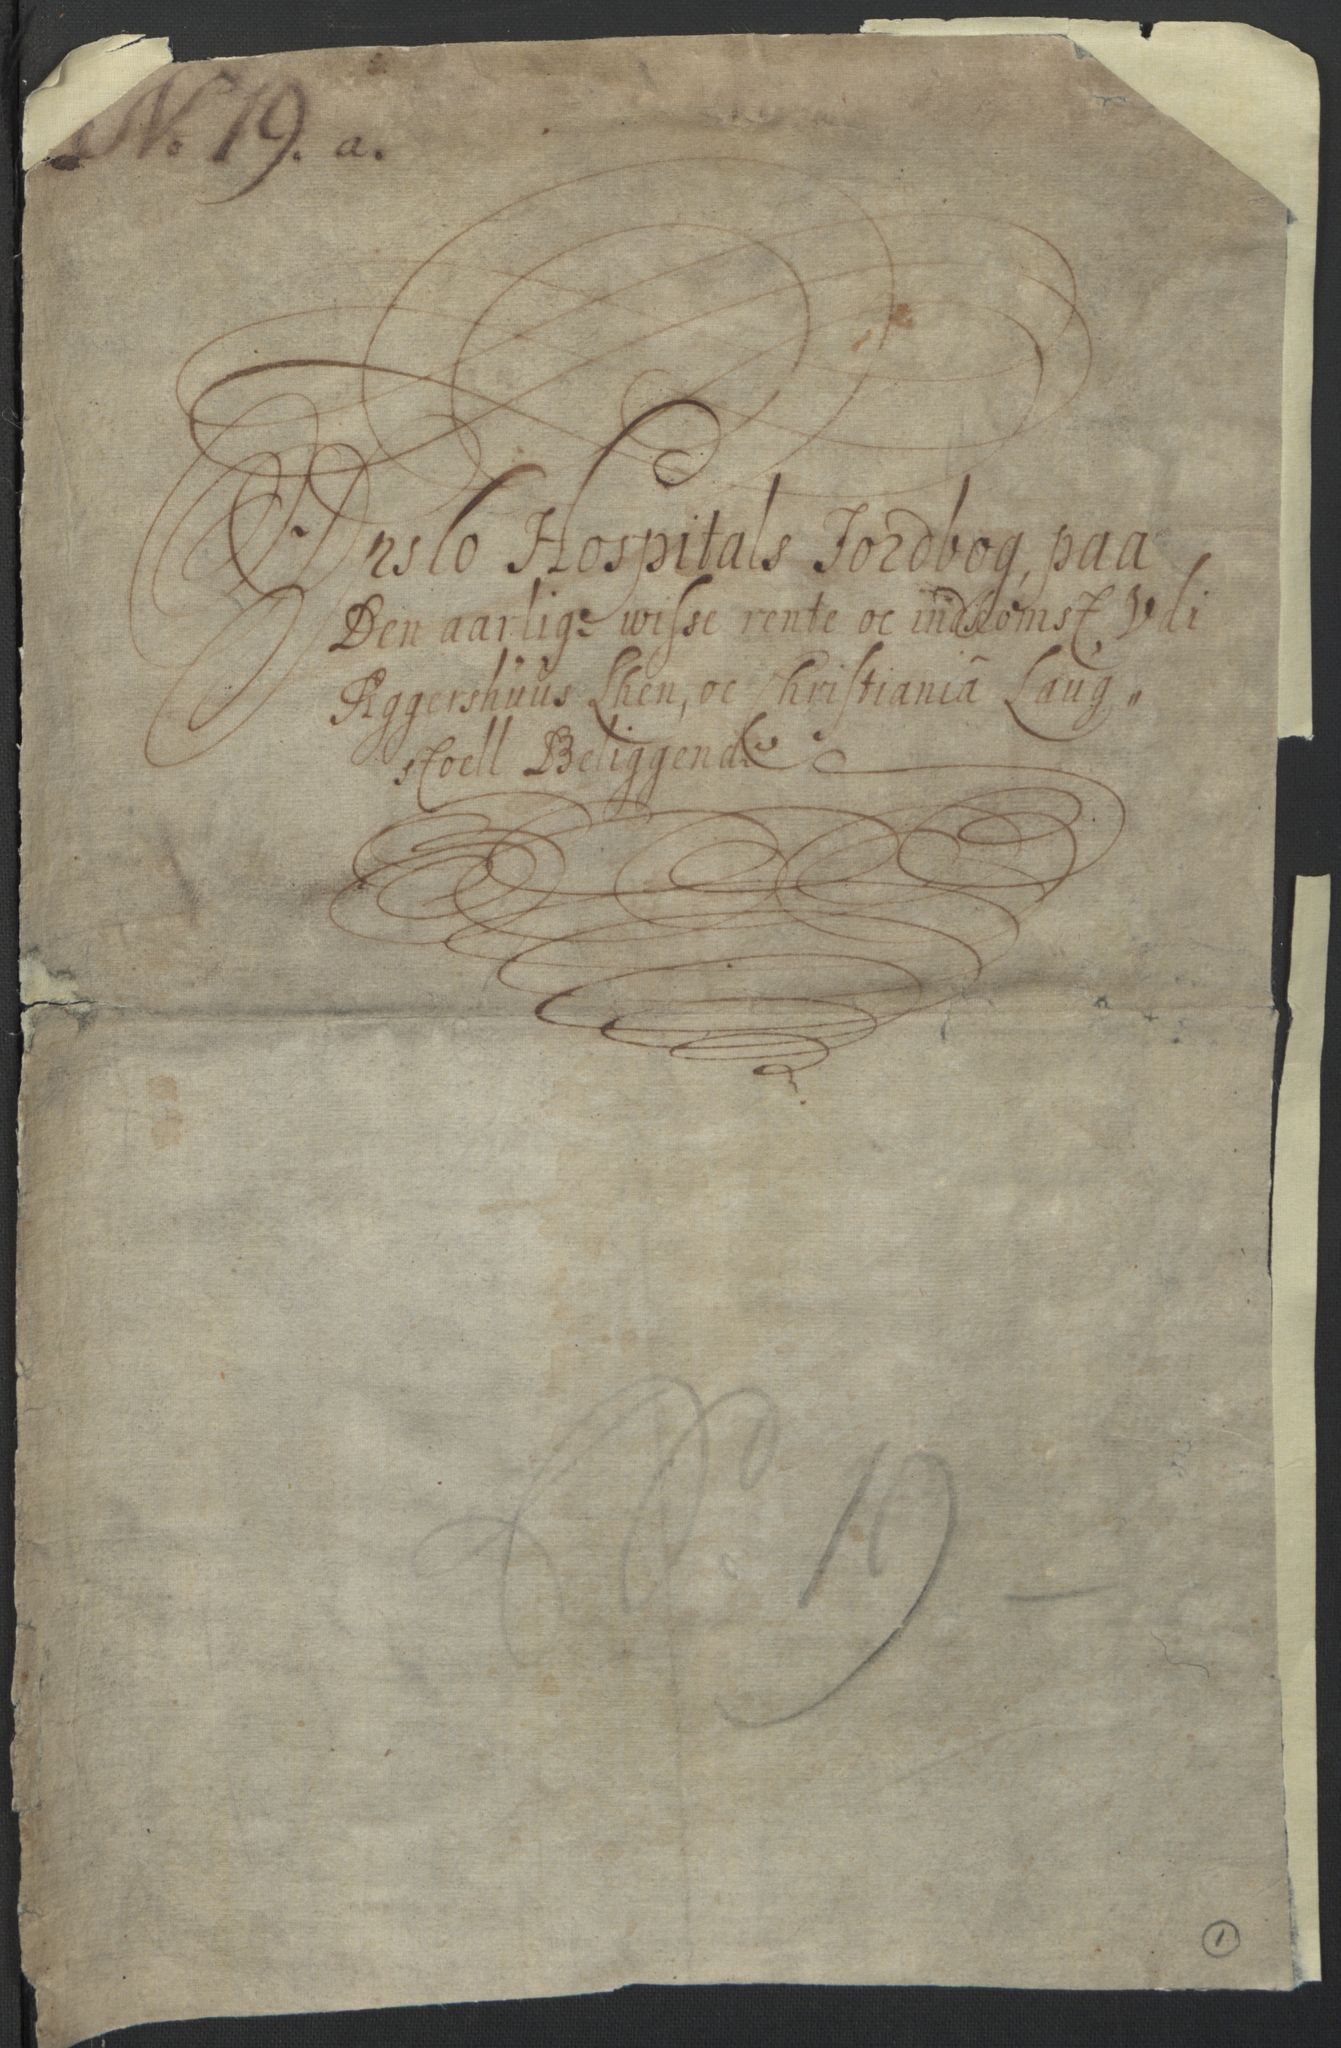 No. 19. a.
Opslo Hospitals Jordbog, paa
Den aarlige wisse rente oc indkomst Vdi
Aggershuus Lhen, oc Christiania Laug„
stoell Beliggende
No. 19
1